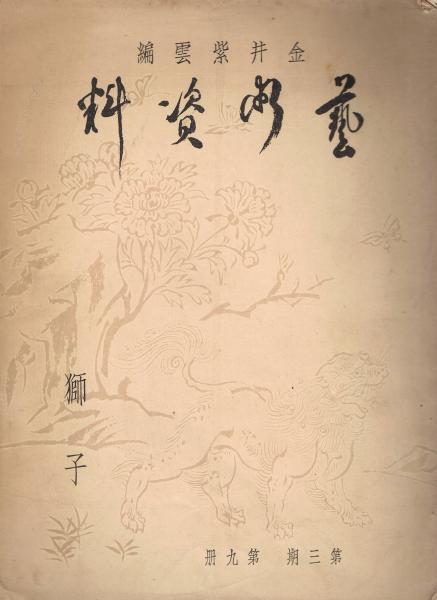 金井紫雲編
藝術資料
獅子
第三期 第九册